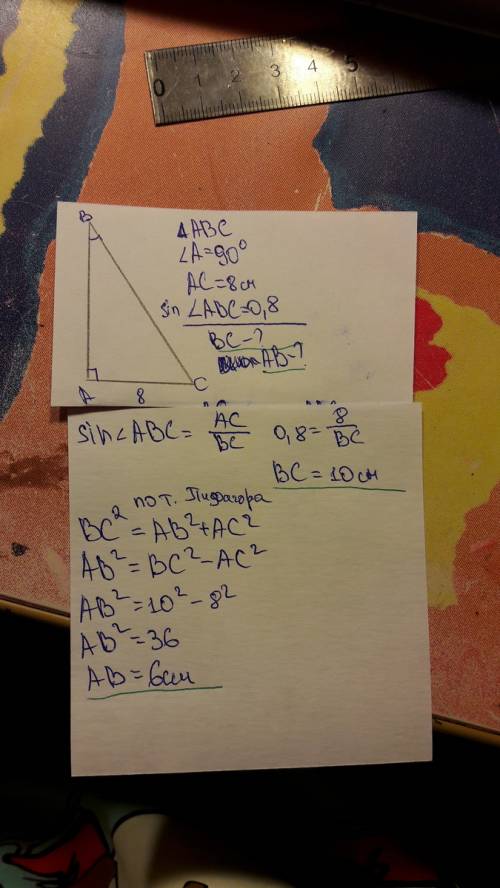 0 1 2 3 4 5
B
ΔABC
∠A=90°
AC=8см
sin ∠ABC=0,8
BC-?
AB-?
A 8 C
sin∠ABC= AC/BC 0,8= 8/BC
BC=10см
по т. Пифагора
BC²=AB²+AC²
AB²=BC²-AC²
AB²=10²-8²
AB²=36
AB=6см